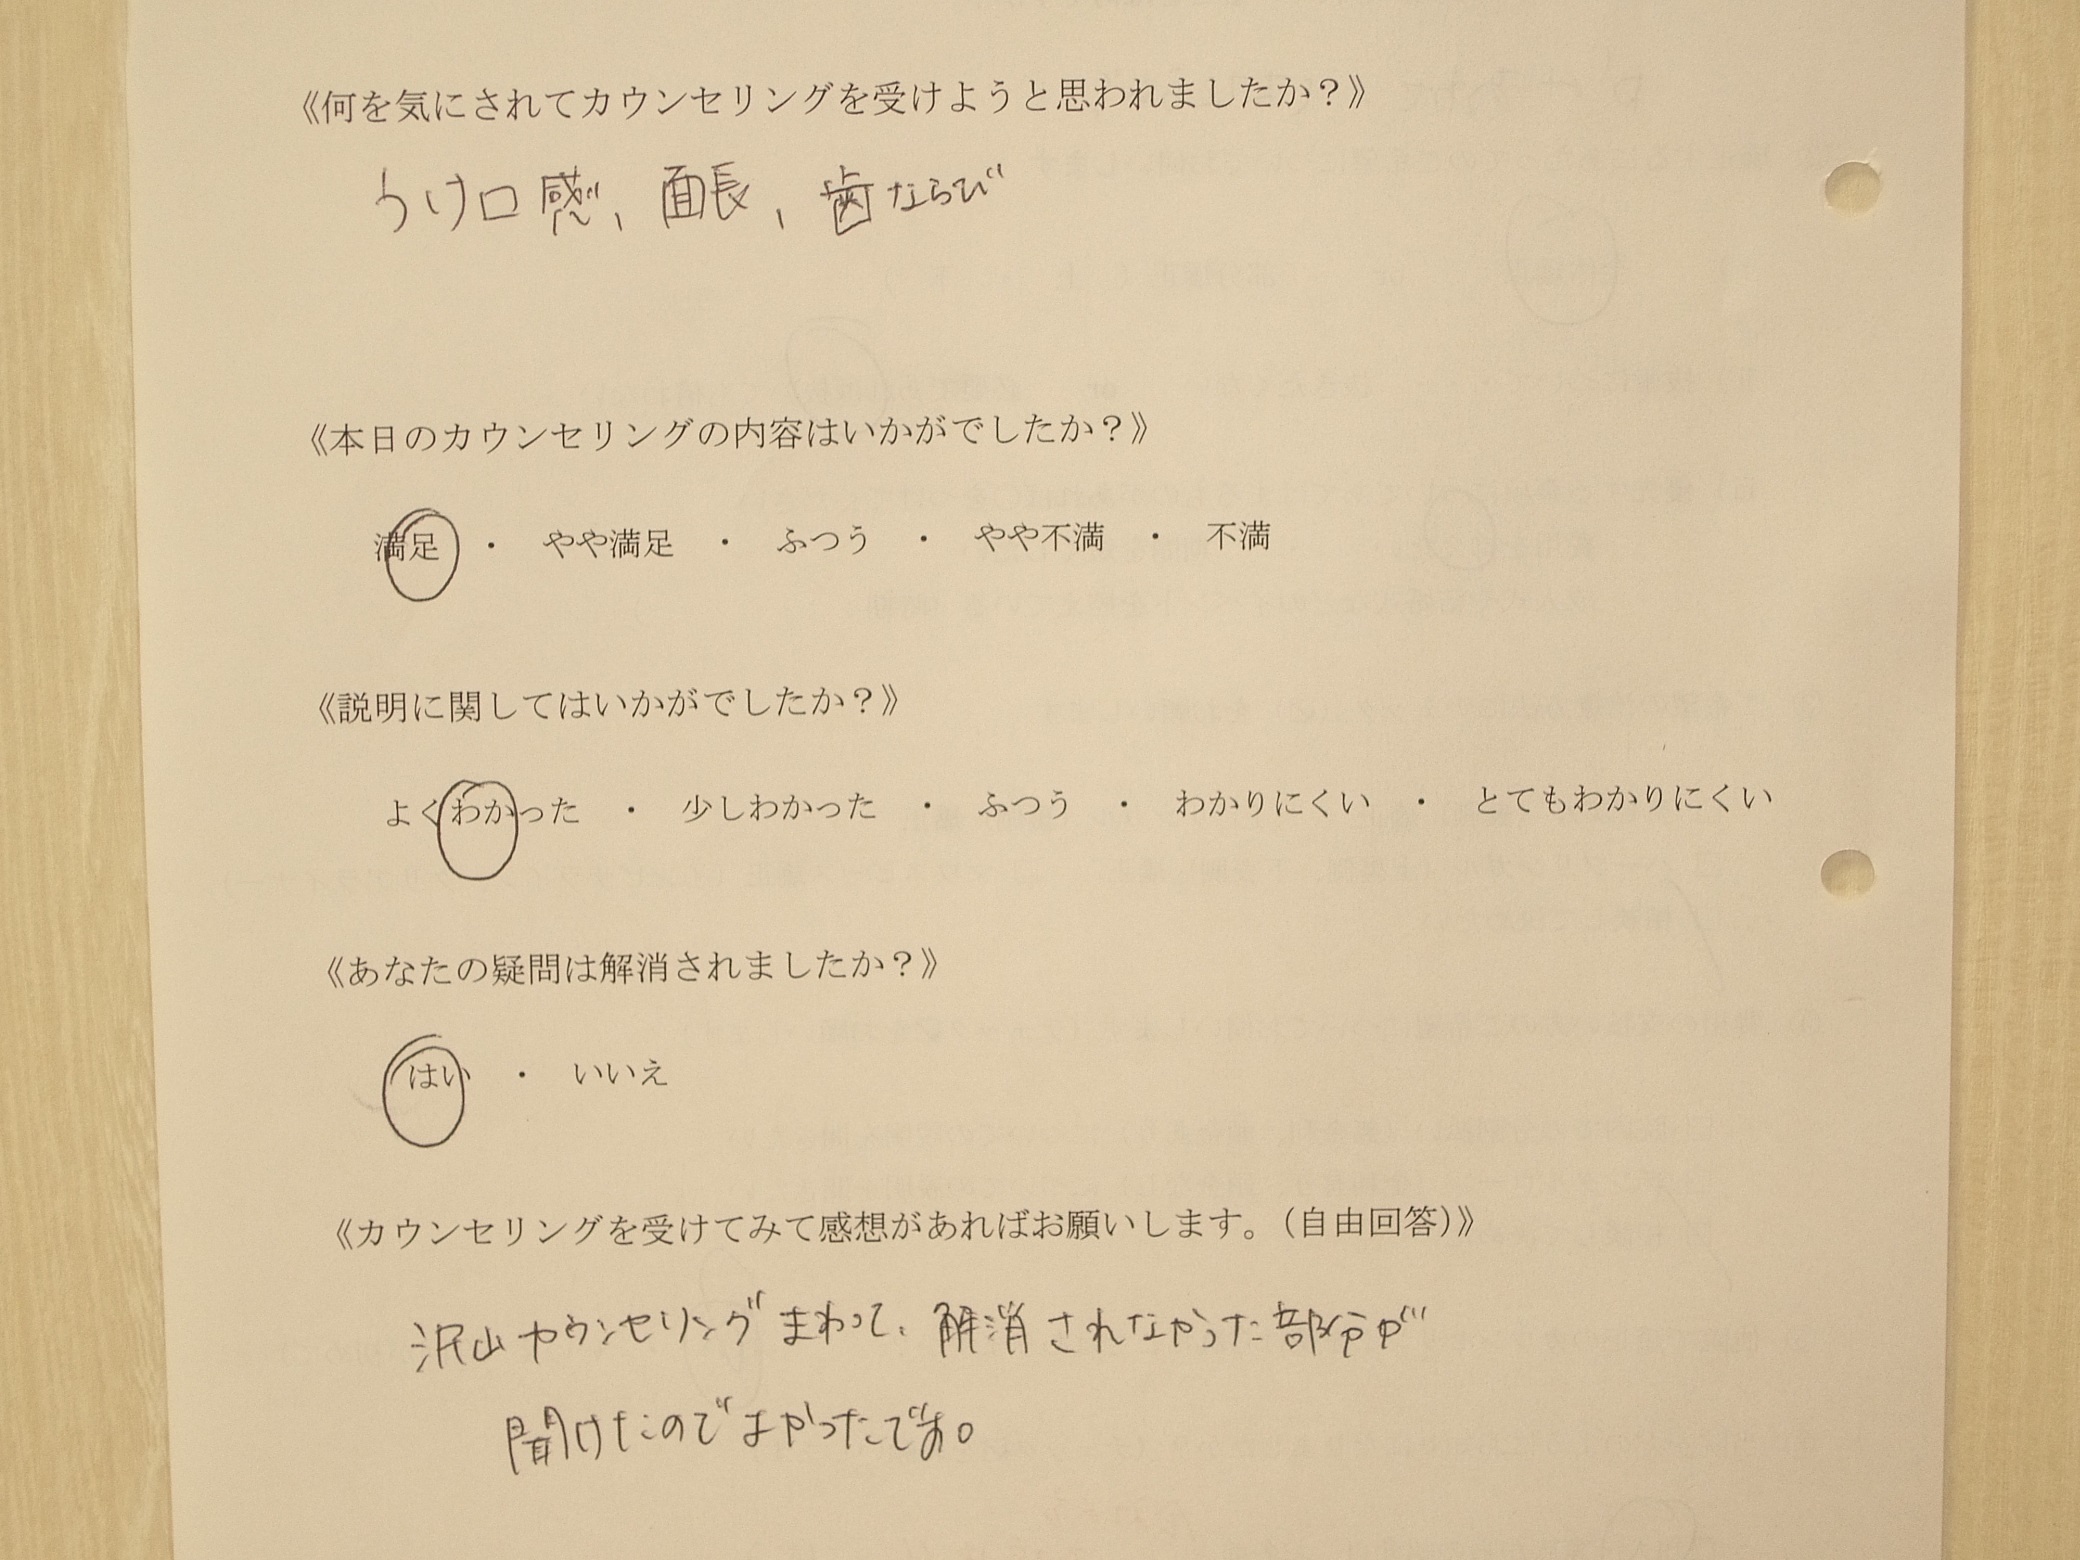 《何を気にされてカウンセリングを受けようと思われましたか？》
うけ口感、面長、歯ならび
《本日のカウンセリングの内容はいかがでしたか？》
満足 ・ やや満足 ・ ふつう ・ やや不満 ・ 不満
《説明に関してはいかがでしたか？》
よくわかった ・ 少しわかった ・ ふつう ・ わかりにくい ・ とてもわかりにくい
《あなたの疑問は解消されましたか？》
はい ・ いいえ
《カウンセリングを受けてみて感想があればお願いします。（自由回答）》
沢山カウンセリングまわって、解消されなかった部分が
聞けたのでよかったです。